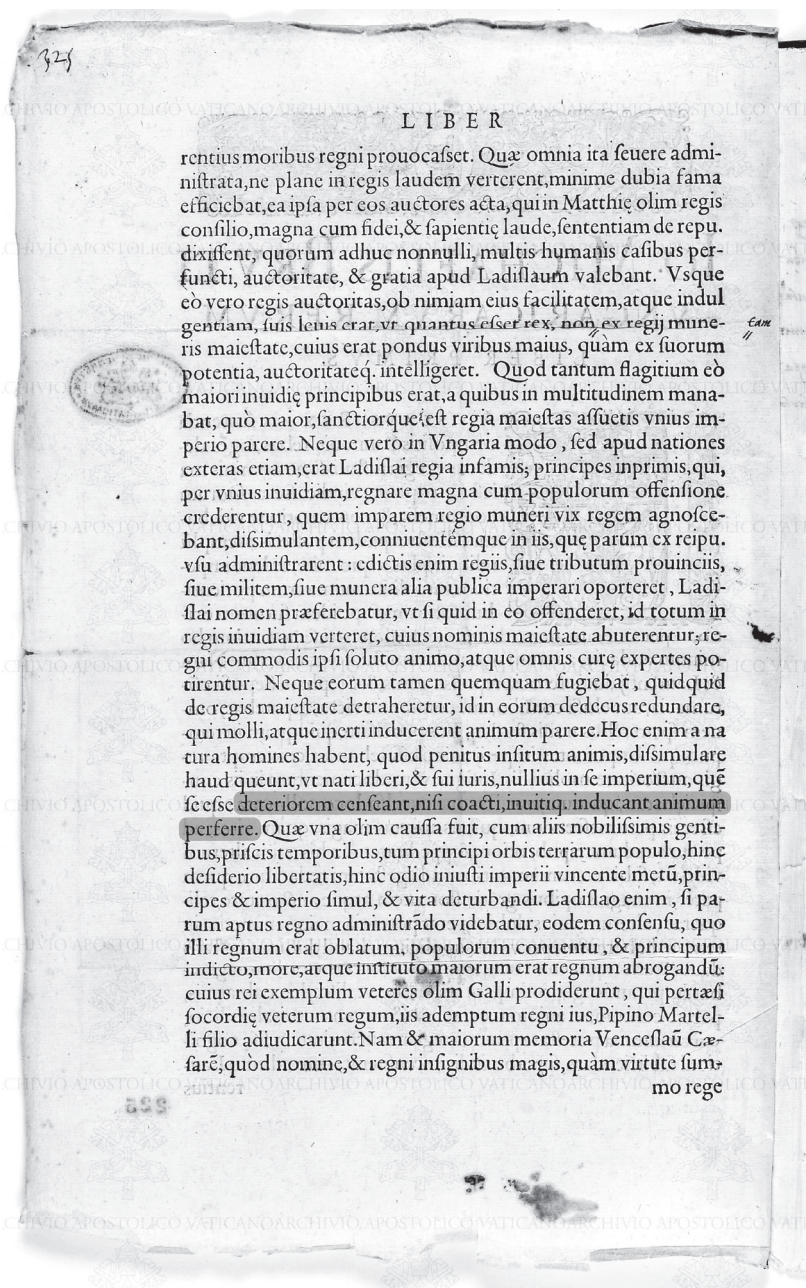 325
LIBER
rentius moribus regni prouocaſset. Quæ omnia ita ſeuere admi-
niſtrata,ne plane in regis laudem verterent,minime dubia fama
efficiebat,ea ipſa per eos auctores acta,qui in Matthię olim regis
conſilio,magna cum fidei,& ſapientię laude,ſententiam de repu.
dixiſſent, quorum adhuc nonnulli, multis humanis caſibus per-
functi, auctoritate, & gratia apud Ladiſlaum valebant. Vsque
eò vero regis auctoritas,ob nimiam eius facilitatem,atque indul
gentiam, ſuis leuis erat,vt quantus eſset rex, non ex regij mune-
eam
ris maieſtate,cuius erat pondus viribus maius, quàm ex ſuorum
potentia, auctoritateq. intelligeret. Quod tantum flagitium eò
maiori inuidię principibus erat,a quibus in multitudinem mana-
bat, quò maior,ſanctiorq́ue eſt regia maieſtas aſſuetis vnius im-
perio parere. Neque vero in Vngaria modo , ſed apud nationes
exteras etiam,erat Ladiſlai regia infamis; principes inprimis,qui,
per vnius inuidiam,regnare magna cum populorum offenſione
crederentur, quem imparem regio muneri vix regem agnoſce-
bant,diſsimulantem,conniuentémque in iis,quę parum ex reipu.
vſu adminiſtrarent : edictis enim regiis,ſiue tributum prouinciis,
ſiue militem,ſiue munera alia publica imperari oporteret , Ladi-
ſlai nomen præferebatur, vt ſi quid in eo offenderet, id totum in
regis inuidiam verteret, cuius nominis maieſtate abuterentur; re-
gni commodis ipſi ſoluto animo,atque omnis curę expertes po-
tirentur. Neque eorum tamen quemquam fugiebat , quidquid
de regis maieſtate detraheretur, id in eorum dedecus redundare,
qui molli,atque inerti inducerent animum parere.Hoc enim a na
tura homines habent, quod penitus inſitum animis,diſsimulare
haud queunt,vt nati liberi,& ſui iuris,nullius in ſe imperium,quē
ſe eſse deteriorem cenſeant,niſi coacti,inuitiq. inducant animum
perferre. Quæ vna olim cauſſa fuit, cum aliis nobiliſsimis genti-
bus,priſcis temporibus,tum principi orbis terrarum populo,hinc
deſiderio libertatis,hinc odio iniuſti imperii vincente metū,prin-
cipes & imperio ſimul, & vita deturbandi. Ladiſlao enim , ſi pa-
rum aptus regno adminiſtrādo videbatur, eodem conſenſu, quo
illi regnum erat oblatum, populorum conuentu , & principum
indicto,more,atque inſtituto maiorum erat regnum abrogandū:
cuius rei exemplum veteres olim Galli prodiderunt , qui pertæſi
ſocordię veterum regum,iis ademptum regni ius,Pipino Martel-
li filio adiudicarunt.Nam & maiorum memoria Venceſlaū Cæ-
ſarē,quòd nomine,& regni inſignibus magis,quàm virtute ſum-
mo rege